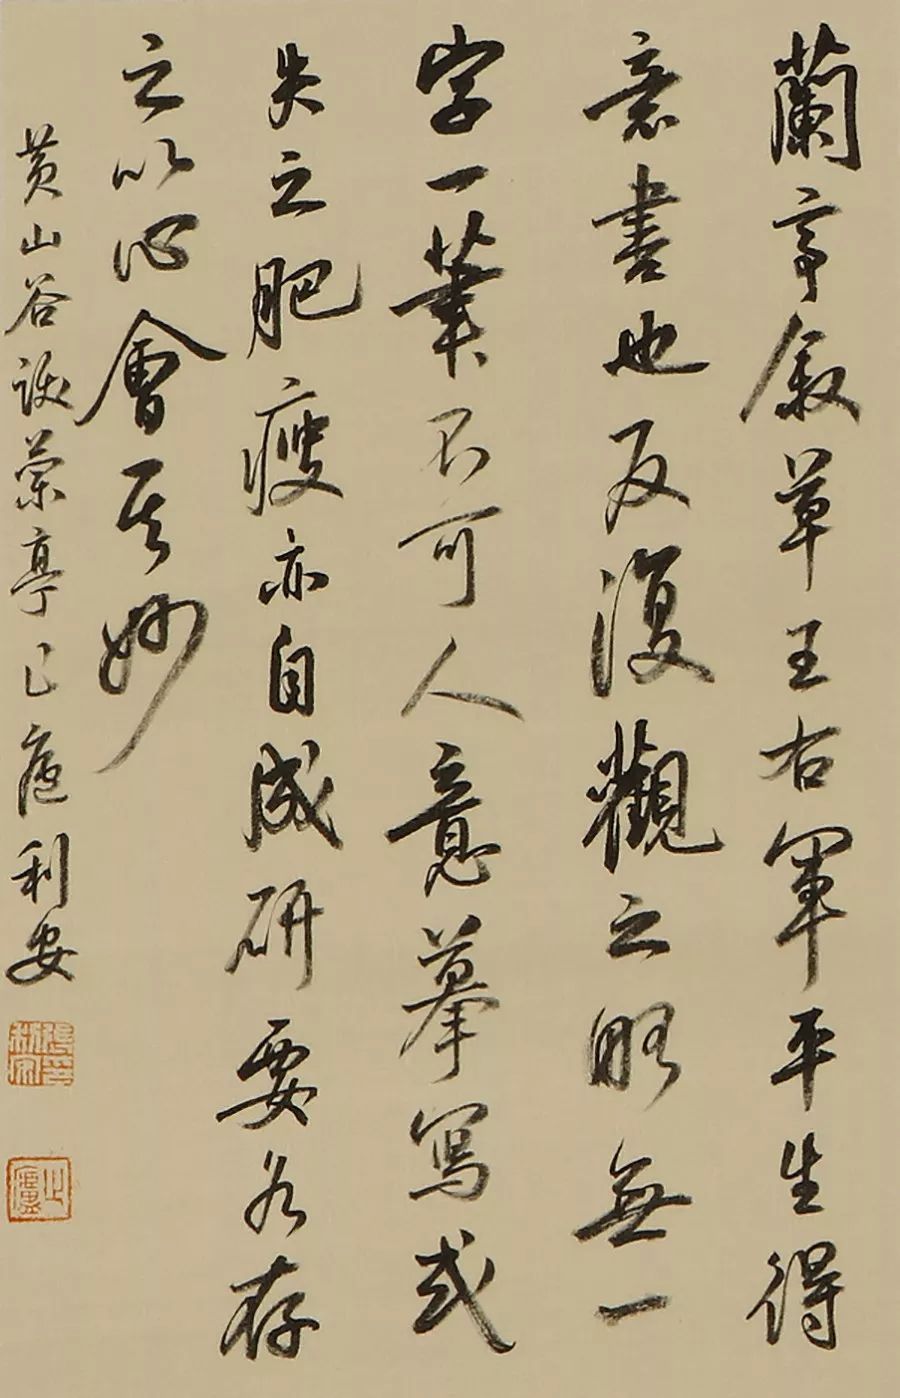 蘭亭叙草王右軍平生得
意書也反復觀之略無一
字一筆不可人意摹寫或
失之肥瘦亦自成研要各存
之以心會其妙
黄山谷跋蘭亭止廬利安
止廬